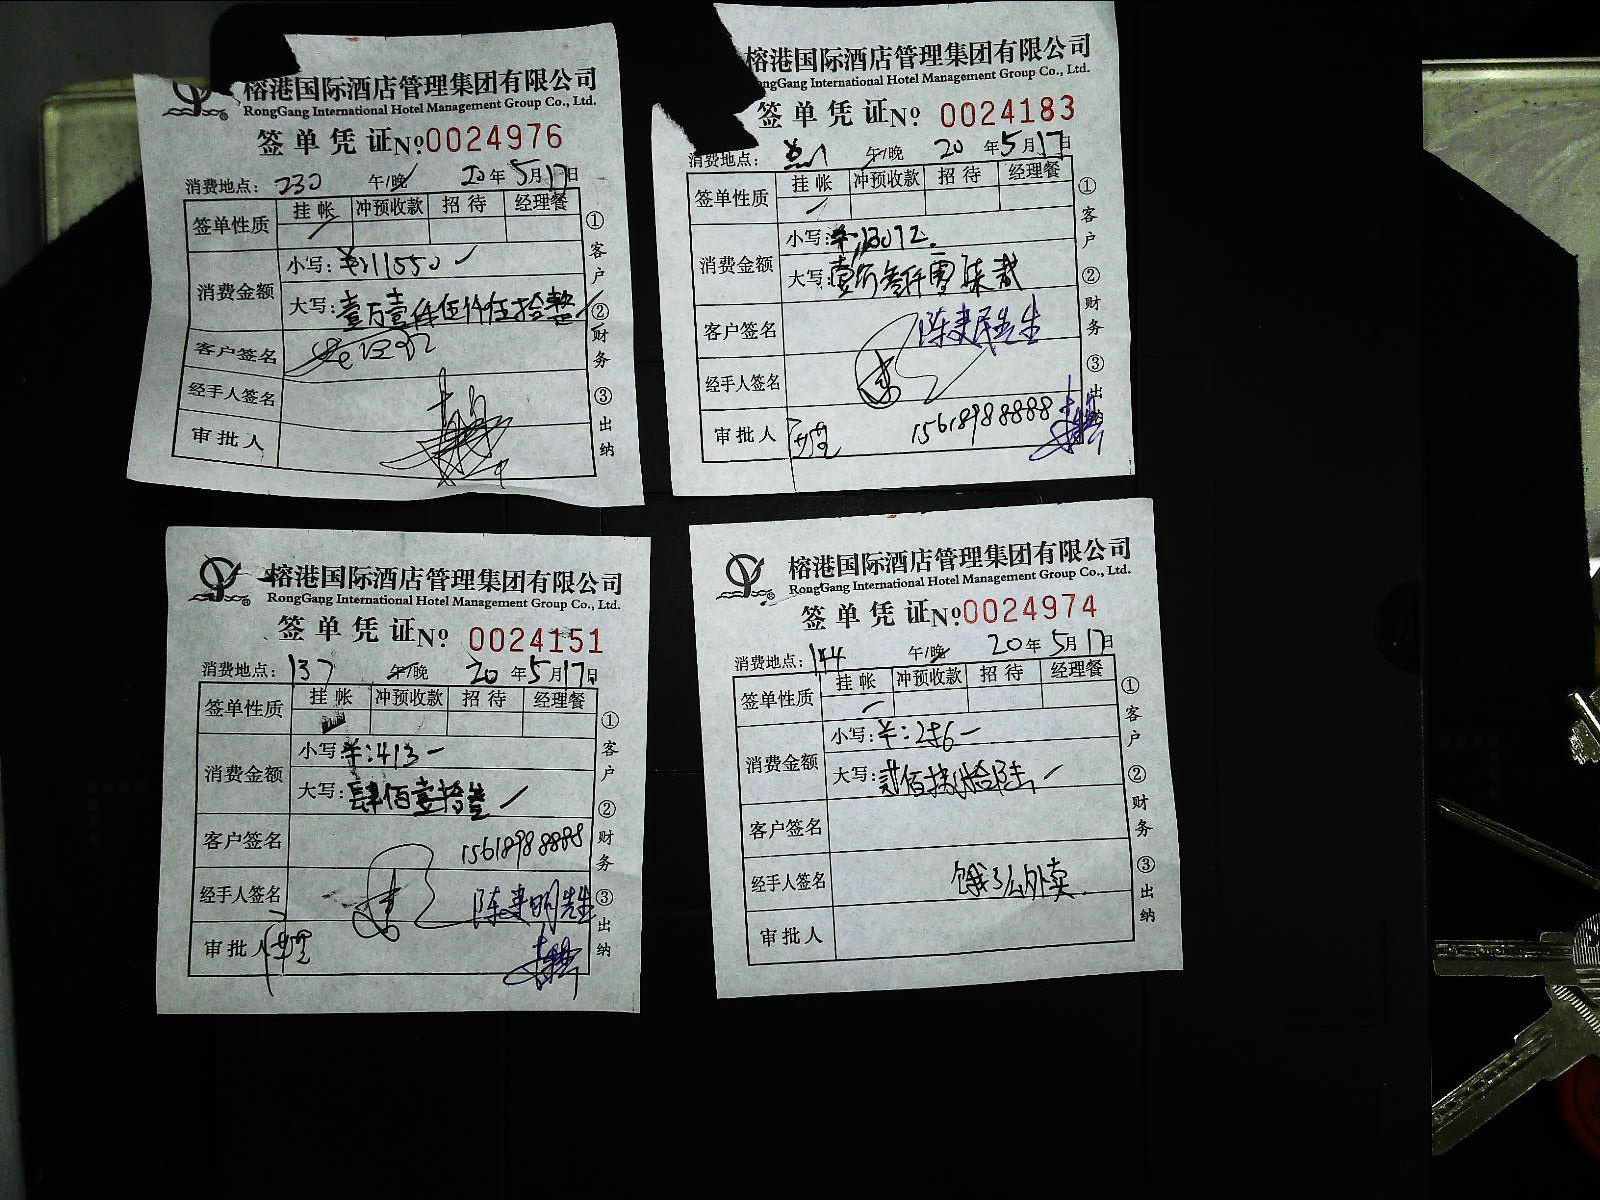 榕港国际酒店管理集团有限公司
RongGang International Hotel Management Group Co., Ltd.
签单凭证 № 0024976
消费地点: 230 午/晚 20年5月17日
签单性质 挂帐 冲预收款 招待 经理餐
消费金额 小写: ¥:11550
大写: 壹万壹仟伍佰伍拾整
客户签名
经手人签名
审批人
①客户 ②财务 ③出纳
榕港国际酒店管理集团有限公司
ngGang International Hotel Management Group Co., Ltd.
签单凭证 № 0024183
消费地点: 午/晚 20年5月17日
签单性质 挂帐 冲预收款 招待 经理餐
消费金额 小写: ¥:13072.
大写: 壹万叁仟零柒贰
客户签名 陈建民先生
经手人签名
审批人 15618988888
①客户 ②财务 ③出纳
榕港国际酒店管理集团有限公司
RongGang International Hotel Management Group Co., Ltd.
签单凭证 № 0024151
消费地点: 137 午/晚 20年5月17日
签单性质 挂帐 冲预收款 招待 经理餐
消费金额 小写: ¥:413
大写: 肆佰壹拾叁
客户签名 15618988888
经手人签名 陈建明先生
审批人
①客户 ②财务 ③出纳
榕港国际酒店管理集团有限公司
RongGang International Hotel Management Group Co., Ltd.
签单凭证 № 0024974
消费地点: 144 午/晚 20年5月17日
签单性质 挂帐 冲预收款 招待 经理餐
消费金额 小写: ¥:
大写: 贰佰拾陆
客户签名
经手人签名 饿了么外卖
审批人
①客户 ②财务 ③出纳